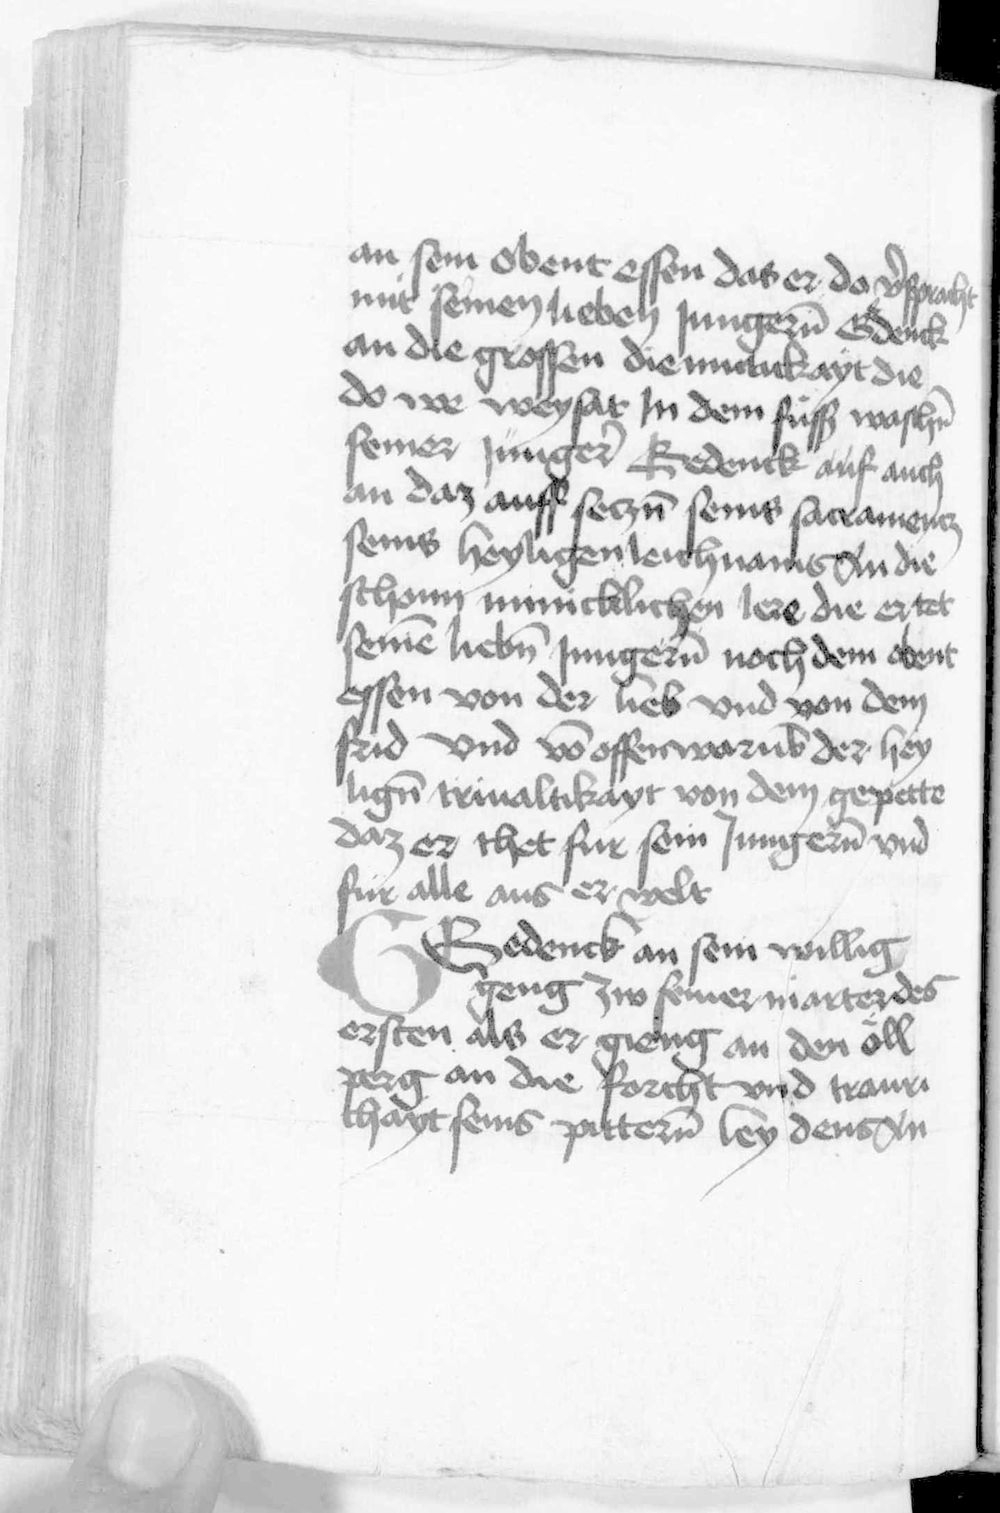 an sein obent essen das er do v̉spracht
mit seinen lieben Jungern̄ Gedenck
an die grossen diemutikayt die
do we weysat In dem fuss waschn̄
seiner Junger̄ Gedenck auf auch
an daz auff seczn̄ seins sacramentz
seins heyligen leichnams An die
schonn mincklichen lere die er tet
seinē liebn̄ Jungern̄ noch dem obent
essen von der lieb vnd von dem
frid vnd vō offenwarūb der hey
lign̄ triualtikayt von dem gepette
daz er thet fur sein Jungern̄ vnd
fur alle aus er welt
Gedenck an sein willig
geng zw seiner marter des
ersten als er gieng an den öll
perg an die forcht vnd trauri
khayt seins pittern̄ ley dens An